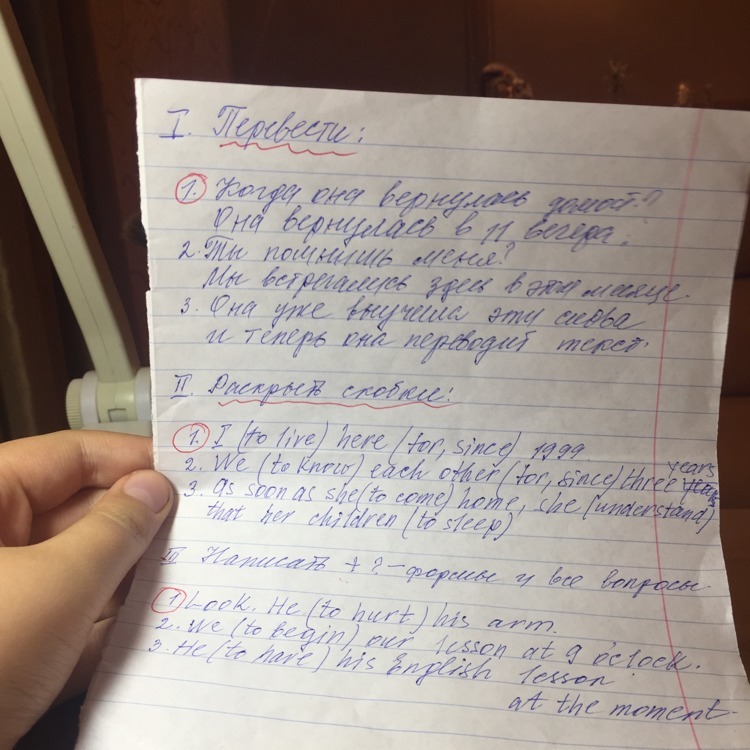 I. Перевести:
1. Когда она вернулась домой?
Она вернулась в 11 вечера.
2. Ты помнишь меня?
Мы встречались здесь в этом месяце.
3. Она уже выучила эти слова
и теперь она переводит текст.
II. Раскрыть скобки:
1. I (to live) here (for, since) 1999.
2. We (to know) each other (for, since) three years
3. as soon as she (to come) home, she (understand)
that her children (to sleep)
III Написать + ? - формы и все вопросы
1 Look. He (to hurt) his arm.
2. We (to begin) our lesson at 9 o'clock.
3. He (to have) his English lesson
at the moment